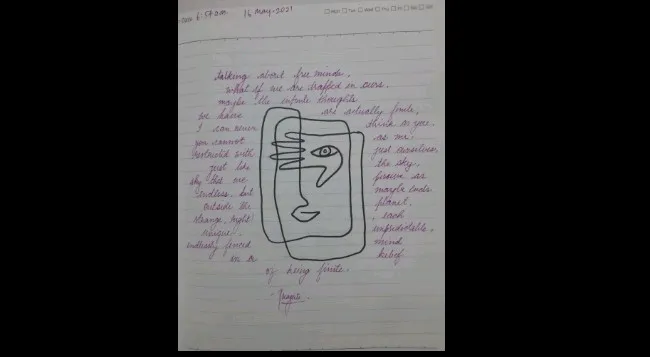 6:17 a.m. 16 May-2021
talking about free minds,
what if we are trapped in ours.
maybe the infinite thoughts
we have are actually finite,
I can never think as you
you cannot as me.
restricted with just ourselves
just like the sky.
sky that we
endless, but maybe ends
outside the planet.
strange, right! each
unique,
endlessly fenced mind
in a belief
of being finite.